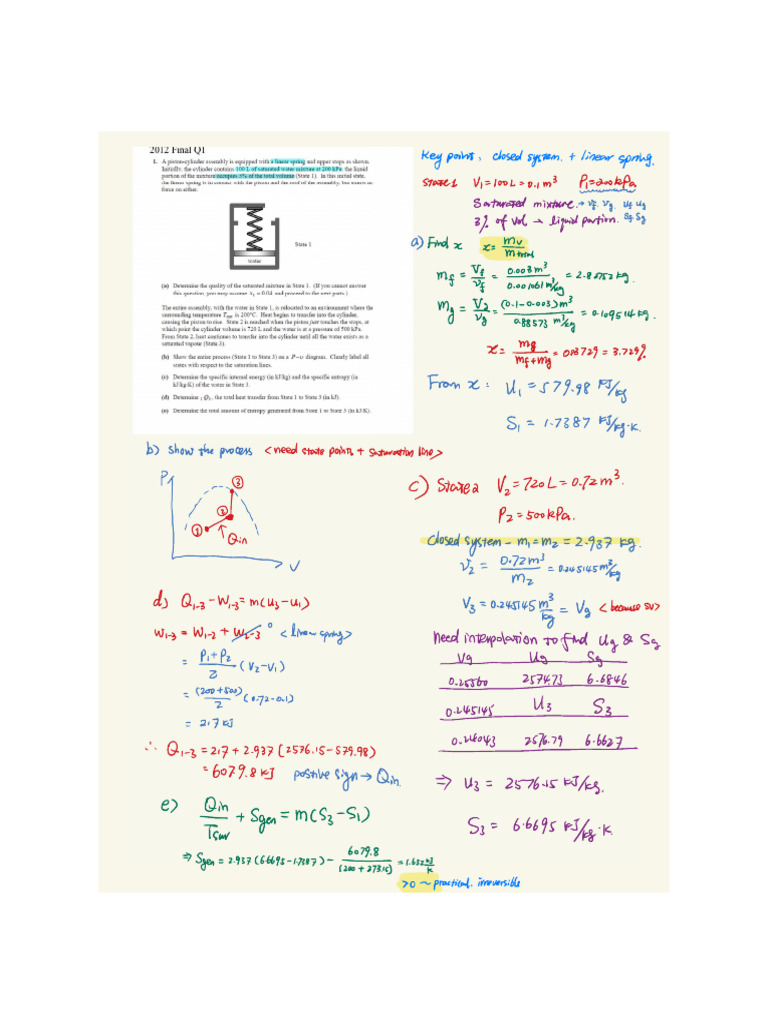 2012 Final Q1
1. A piston-cylinder assembly is equipped with a linear spring and upper stops as shown.
Initially, the cylinder contains 100 L of saturated water mixture at 200 kPa; the liquid
portion of the mixture occupies 3% of the total volume (State 1). In this initial state,
the linear spring is in contact with the piston and the roof of the assembly, but exerts no
force on either.
State 1
water
(a) Determine the quality of the saturated mixture in State 1. (If you cannot answer
this question, you may assume x₁ = 0.04 and proceed to the next parts.)
The entire assembly, with the water in State 1, is relocated to an environment where the
surrounding temperature Tsurr is 200°C. Heat begins to transfer into the cylinder,
causing the piston to rise. State 2 is reached when the piston just touches the stops, at
which point the cylinder volume is 720 L and the water is at a pressure of 500 kPa.
From State 2, heat continues to transfer into the cylinder until all the water exists as a
saturated vapour (State 3).
(b) Show the entire process (State 1 to State 3) on a P-υ diagram. Clearly label all
states with respect to the saturation lines.
(c) Determine the specific internal energy (in kJ/kg) and the specific entropy (in
kJ/kg·K) of the water in State 3.
(d) Determine ₁Q₃, the total heat transfer from State 1 to State 3 (in kJ).
(e) Determine the total amount of entropy generated from State 1 to State 3 (in kJ/K).
Key points: closed system + linear spring.
State 1 V₁=100L=0.1m³ P₁=200kPa
Saturated mixture → Vf. Vg. Uf Ug
Sf Sg
3% of vol → liquid portion.
a) Find x x= mv/mtotal
mf = Vf/vf = 0.003m³/0.001061 m³/kg = 2.82752 kg.
mg = Vg/vg = (0.1-0.003)m³/0.88573 m³/kg = 0.109514 kg.
x = mg/(mf+mg) = 0.03729 = 3.729%
From x: U₁ = 579.98 KJ/kg
S₁ = 1.7387 KJ/kg·K.
b) Show the process <need state points + saturation line>
P
①
②
③
Qin
V
c) State 2 V₂=720L=0.72m³.
P₂=500kPa.
Closed system - m₁=m₂ = 2.937 kg.
V₂ = 0.72m³/m₂ = 0.245145 m³/kg
V₃=0.245145 m³/kg = Vg <because SV>
Need interpolation to find Ug & Sg
Vg Ug Sg
2574.73 6.6846
0.245145 U₃ S₃
2576.79 6.6627
⇒ U₃ = 2576.15 KJ/kg.
S₃ = 6.6695 KJ/kg·K
d) Q₁₋₃ - W₁₋₃ = m(U₃-U₁)
W₁₋₃ = W₁₋₂ + W₂₋₃ 0 <linear spring>
= (P₁+P₂)/2 (V₂-V₁)
= (200+500)/2 (0.72-0.1)
= 217 KJ
∴ Q₁₋₃ = 217 + 2.937 (2576.15-579.98)
= 6079.8 KJ postive sign → Qin.
e) Qin/Tsurr + Sgen = m(S₃-S₁)
⇒ Sgen = 2.937 (6.6695-1.7387) - 6079.8/(200+273.15) = 1.632 KJ/K
>0 ~ practical. irreversible